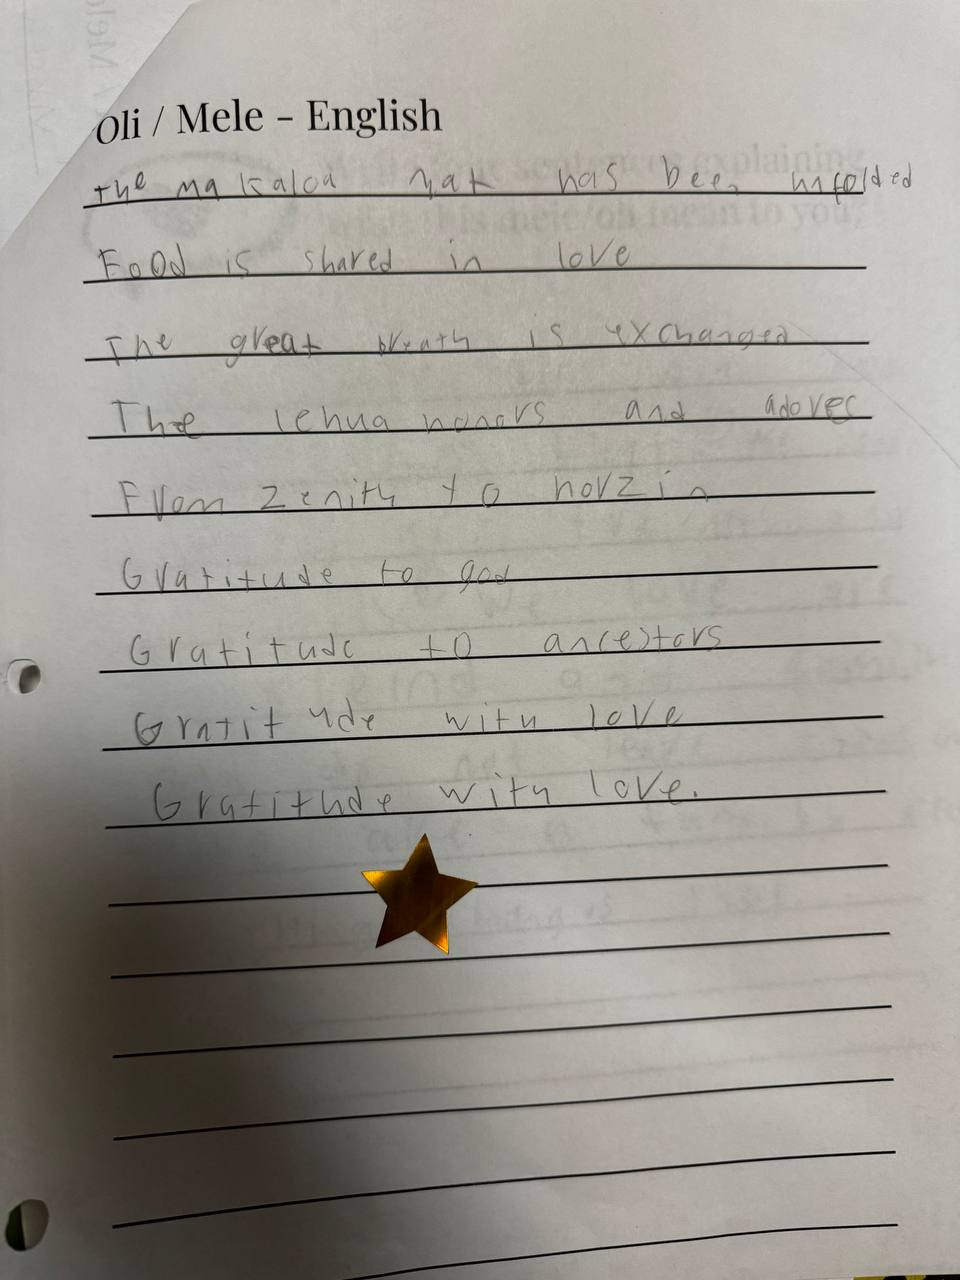 Oli / Mele – English
the makaloa mak has been unfolded
Food is shared in love
The great breath is exchanged
The lehua honors and adores
From zenith to horzin
Gratitude to god
Gratitude to ancestors
Gratitude with love
Gratitude with love.